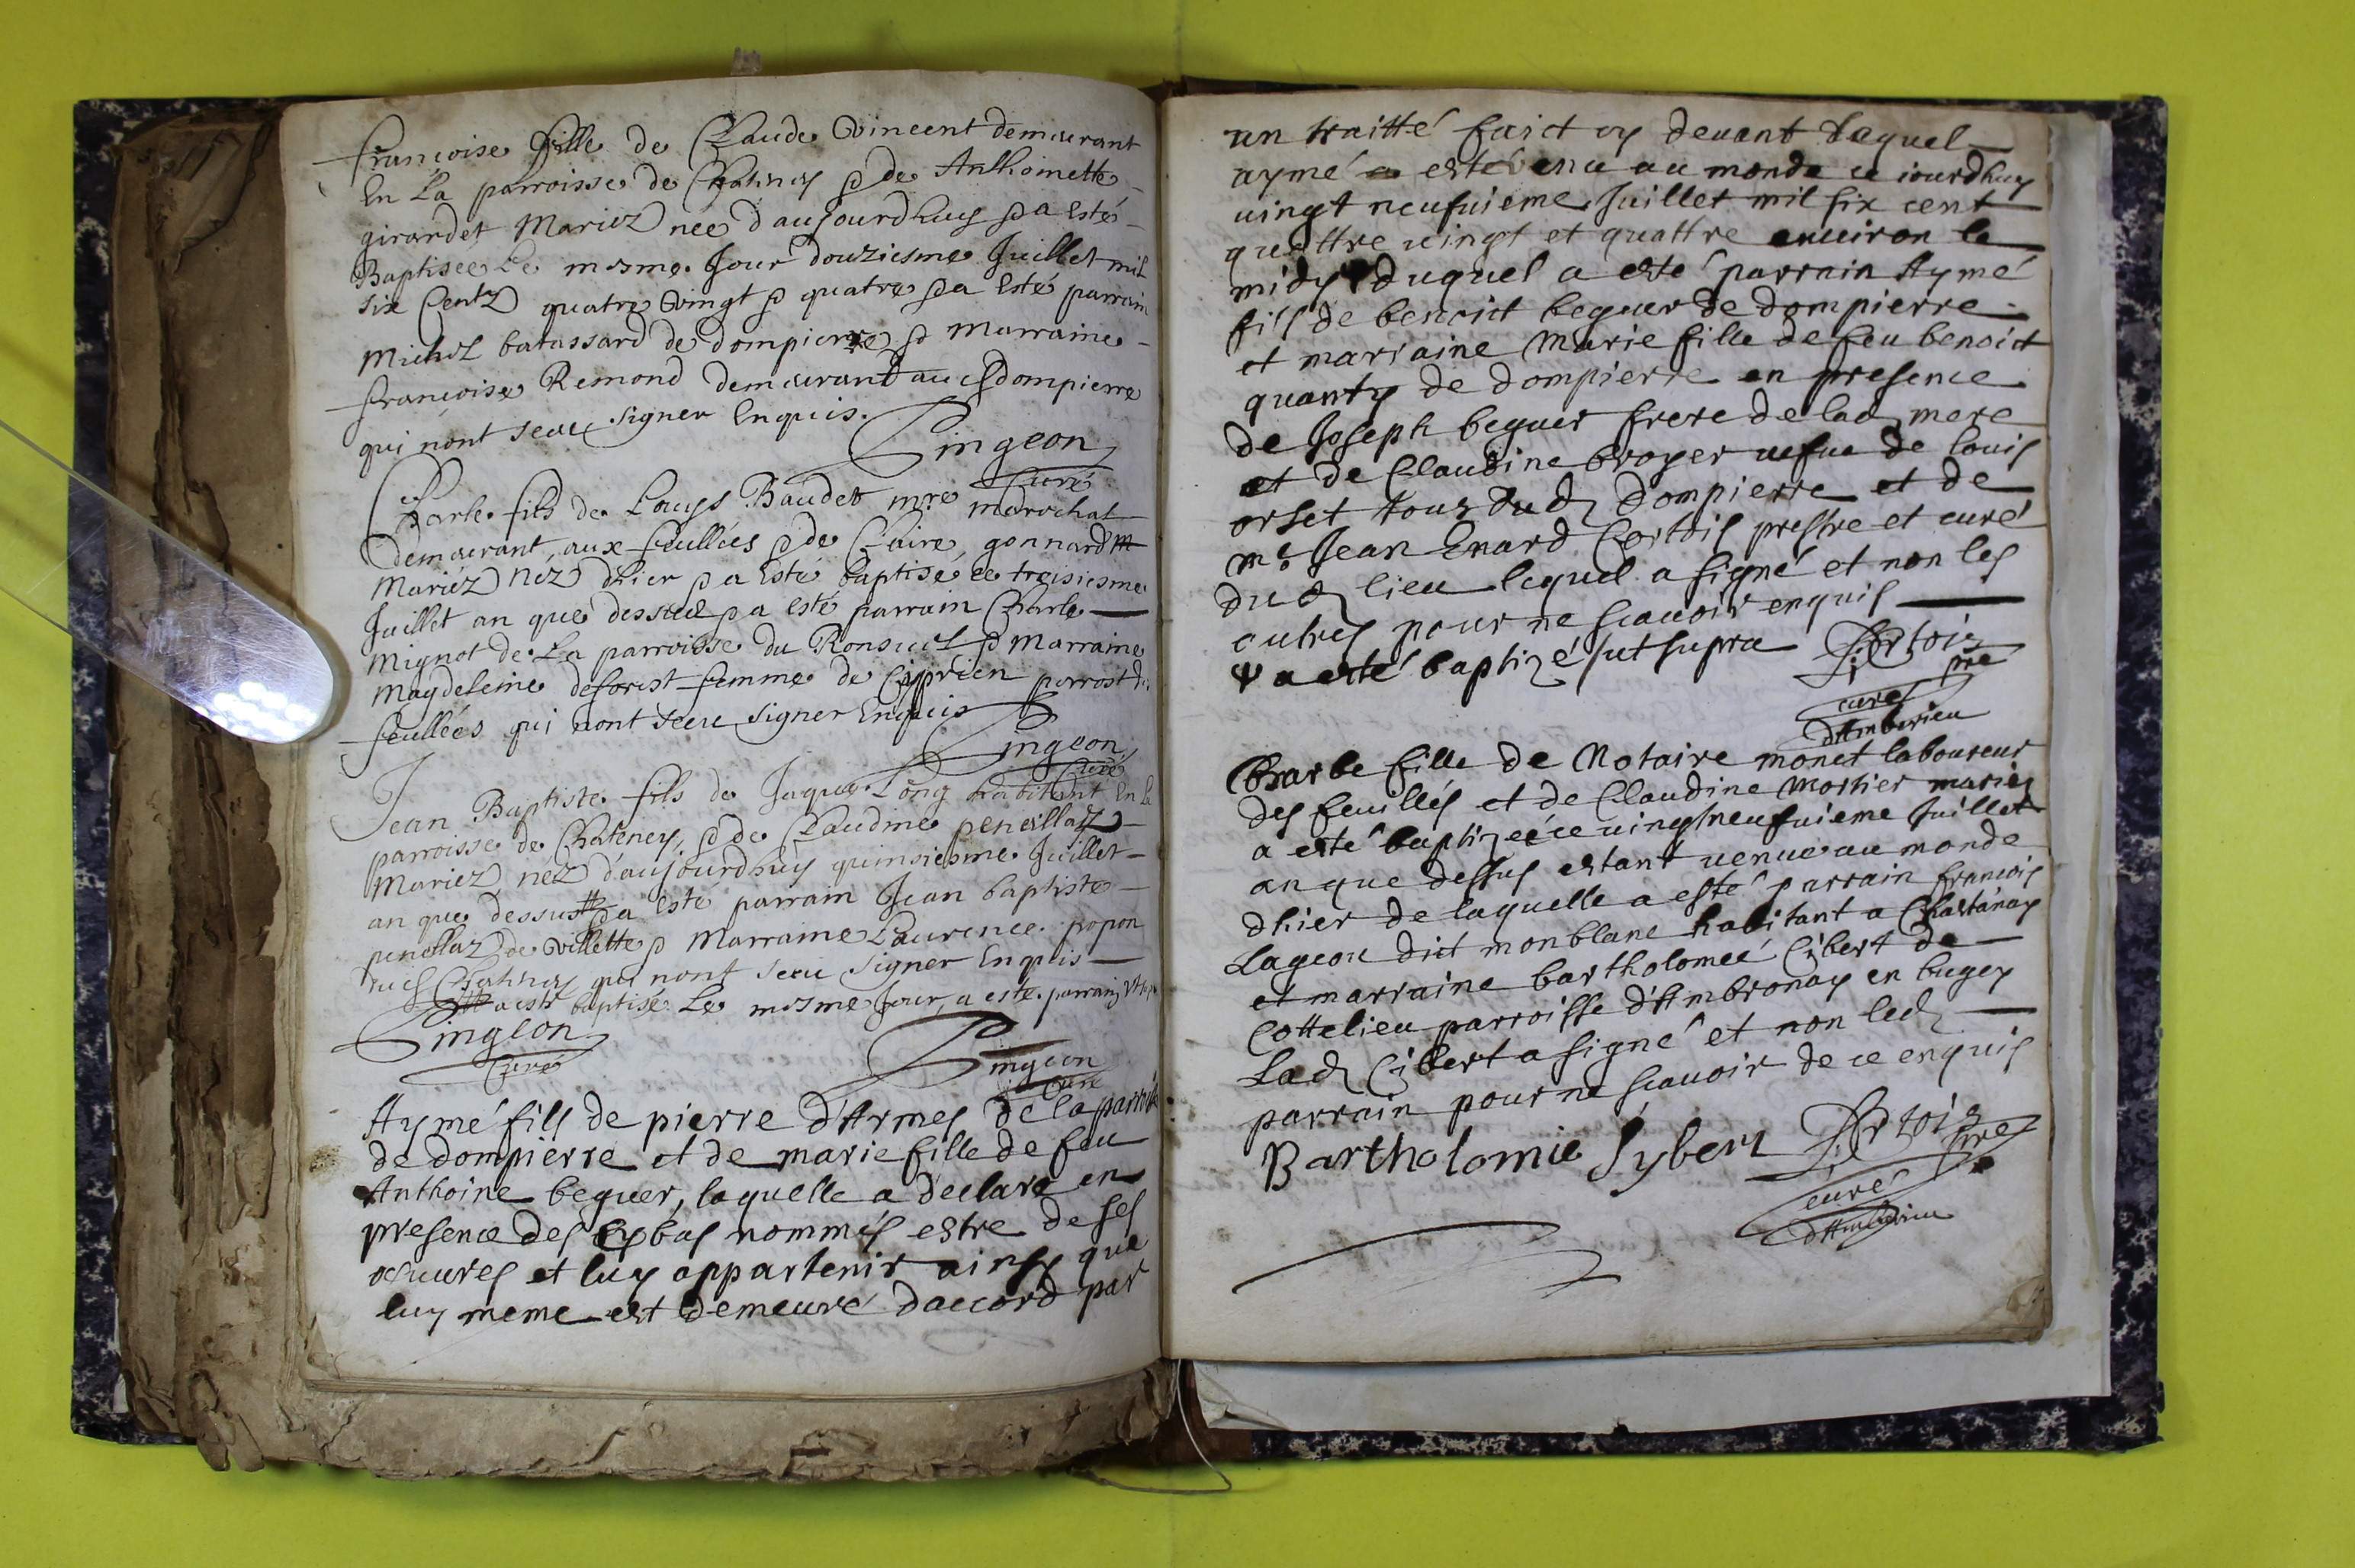 françoise fille de Claude Vincent demeurant
En La parroisse de Chatenay & de Anthoinette
girardet Mariez née d'aujourdhuy & a Esté
Baptisée Le mesme Jour douziesme Juillet mil
six Centz quatre vingt & quatre & a Esté parrain
Michel batassard de dompierre & Marraine
françoise Remond demeurant aud dompierre
qui nont sceu signer Enquis.
Pingeon
Curé
Charle fils de Louys Baudet mre marechal
demeurant, aux feullées & de Claire gonnard
Mariéz Nez dhier & a Esté baptisé ce treisiesme
Juillet an que dessus & a esté parrain Charle
Mignot de La parroisse du Ronsuel & Marraine
Magdeleine deforest femme de Ciprien perrost des
feullées qui nont sceu signer Enquis
Pingeon
Curé
Jean Baptiste fils de Jaque Long habitant En la
parroisse de Chateney, & de Claudine penellaz
Mariez, nez d'aujourdhuy quinsiesme Juillet
an que dessus & a Esté parrain Jean baptiste
penellaz de villette & Marraine Laurence popon
dud Chatenay qui nont sceu signer Enquis
a esté baptisé Le mesme Jour, a esté parrain
Pingeon
Curé
Pingeon
Curé
Aymé fils de pierre d'Armes de la parroisse
de dompierre et de marie fille de feu
Anthoine beguer, laquelle a declaré en
presence des cy bas nommés estre de ses
oeuures et luy appartenir ainsy que
luy meme est demeuré daccord par
un traitté faict cy deuant Lequel
aymé a esté venu au monde ce iourdhuy
uingt neufuieme Juillet mil six cent
quattre uingt et quattre enuiron le
midy Duquel a esté parrain Aymé
fils de benoict beguer de dompierre
et marraine Marie fille de feu benoict
quanty de dompierre en presence
de Joseph beguer frere de lad mere
et de Claudine broyer uefue de louis
orset tous dud dompierre et de
mr Jean Enard Cortois prestre et curé
dud lieu lequel a signé et non les
autres pour ne scauoir enquis
Ψ a esté baptizé ut supra
Artois
pre
curé
d'Amberieu
Barbe fille de Notaire monet laboureur
des feuillés et de Claudine Mortier mariés
a esté baptizeé ce uingtneufuieme Juillet
an que dessus estant uenue au monde
dhier de laquelle a esté parrain francois
Lageon dict monblanc habitant a Chastanay
et marraine bartholomeé Cibert de
Cottelieu parroisse d'Ambronay en bugey
Lad Cibert a signé et non led
parrain pour ne scauoir de ce enquis
Bartholomie Sybert
Artois
pre
curé
d'Amberieu